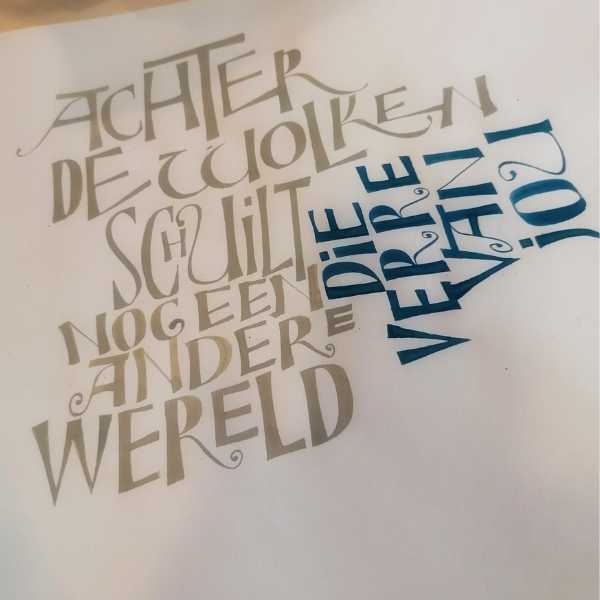 ACHTER
DE WOLKEN
SCHUILT
NOG EEN
ANDERE
WERELD
DIE
VERRE
VAN
JOU